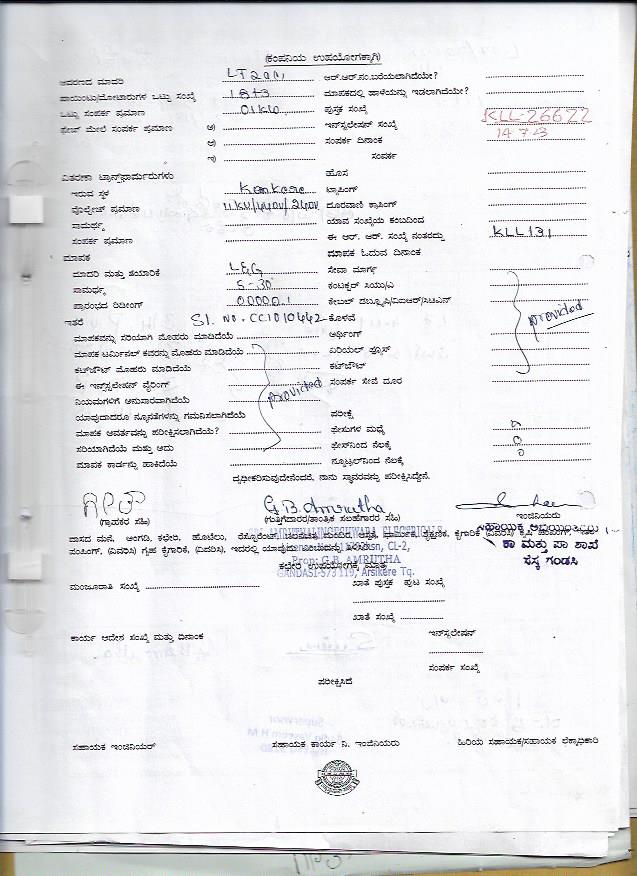 (ಕಂಪನಿಯ ಉಪಯೋಗಕ್ಕಾಗಿ)
ಆವರಣದ ಮಾದರಿ LT2a(ii) ಆರ್.ಆರ್.ನಂ.ಬರೆಯಲಾಗಿದೆಯೇ?
ಪಾಯಿಂಟು/ಮೋಟಾರುಗಳ ಒಟ್ಟು ಸಂಖ್ಯೆ 18+3 ಮಾಪಕದಲ್ಲಿ ಹಾಳೆಯನ್ನು ಇಡಲಾಗಿದೆಯೇ?
ಒಟ್ಟು ಸಂಪರ್ಕ ಪ್ರಮಾಣ 01KW ಪುಸ್ತಕ ಸಂಖ್ಯೆ
ಫೇಜ್ ಮೇಲೆ ಸಂಪರ್ಕ ಪ್ರಮಾಣ ಅ) ಇನ್‌ಸ್ಟಲೇಷನ್ ಸಂಖ್ಯೆ KLL-26622
ಆ) ಸಂಪರ್ಕ ದಿನಾಂಕ 14 7 23
ಇ) ಸಂಪರ್ಕ
ವಿತರಣಾ ಟ್ರಾನ್ಸ್‌ಫಾರ್ಮರುಗಳು ಹೊಸ
ಇರುವ ಸ್ಥಳ Kenkere ಟ್ಯಾಪಿಂಗ್
ವೋಲ್ಟೇಜ್ ಪ್ರಮಾಣ 11KV/440V/240V ದೂರವಾಣಿ ಕ್ರಾಸಿಂಗ್
ಸಾಮರ್ಥ್ಯ ಯಾವ ಸಂಖ್ಯೆಯ ಕಂಬದಿಂದ
ಸಂಪರ್ಕ ಪ್ರಮಾಣ ಈ ಆರ್. ಆರ್. ಸಂಖ್ಯೆ ನಂತರದ್ದು KLL131
ಮಾಪಕ ಮಾಪಕ ಓದುವ ದಿನಾಂಕ
ಮಾದರಿ ಮತ್ತು ತಯಾರಿಕೆ L&G ಸೇವಾ ಮಾರ್ಗ
ಸಾಮರ್ಥ್ಯ 5-30 ಕಂಟಕ್ಟರ್ ಸಿಯು/ಎ
ಪ್ರಾರಂಭದ ರಿಡೀಂಗ್ 00000.1 ಕೇಬಲ್ ಡಬ್ಲ್ಯೂಪಿ/ವಿಐಆರ್/ಸಿಟಿಎಸ್
ಇತರೆ Sl. No. CC1010442 ಕೊಳವೆ provided
ಮಾಪಕವನ್ನು ಸರಿಯಾಗಿ ಮೊಹರು ಮಾಡಿದೆಯೆ ಅರ್ಥಿಂಗ್
ಮಾಪಕ ಟರ್ಮಿನಲ್ ಕವರನ್ನು ಮೊಹರು ಮಾಡಿದೆಯೆ ಏರಿಯಲ್ ಫ್ಯೂಸ್
ಕಟ್‌ಔಟ್ ಮೊಹರು ಮಾಡಿದೆಯೆ ಕಟ್‌ಔಟ್
ಈ ಇನ್‌ಸ್ಟಲೇಷನ್ ವೈರಿಂಗ್ provided ಸಂಪರ್ಕ ಸೇವೆ ದೂರ
ನಿಯಮಗಳಿಗೆ ಅನುಸಾರವಾಗಿದೆಯೆ
ಯಾವುದಾದರೂ ನ್ಯೂನತೆಗಳನ್ನು ಗಮನಿಸಲಾಗಿದೆಯೆ ಪರೀಕ್ಷೆ
ಮಾಪಕ ಆವರ್ತವನ್ನು ಪರೀಕ್ಷಿಸಲಾಗಿದೆಯೆ? ಫೇಸುಗಳ ಮಧ್ಯೆ
ಸರಿಯಾಗಿದೆಯೆ ಮತ್ತು ಅದು ಫೇಸ್‌ನಿಂದ ನೆಲಕ್ಕೆ
ಮಾಪಕ ಕಾರ್ಡನ್ನು ಹಾಕಿದೆಯೆ ನ್ಯೂಟ್ರಲ್‌ನಿಂದ ನೆಲಕ್ಕೆ
ದೃಢೀಕರಿಸುವುದೇನೆಂದರೆ, ನಾನು ಸ್ಥಾವರವನ್ನು ಪರೀಕ್ಷಿಸಿದ್ದೇನೆ.
G.B. Amrutha
(ಗ್ರಾಹಕರ ಸಹಿ) (ಗುತ್ತಿಗೆದಾರರ/ತಾಂತ್ರಿಕ ಸಲಹೆಗಾರರ ಸಹಿ) ಇಂಜಿನಿಯರು
AMRUTHALINGESHWARA ELECTRICALS
ಸಹಾಯಕ ಅಭಿಯಂತರರು
ವಾಸದ ಮನೆ, ಅಂಗಡಿ, ಕಛೇರಿ, ಹೋಟೆಲು,
CL-2,
ಕಾ ಮತ್ತು ಪಾ ಶಾಖೆ
Prop: G.B. AMRUTHA
ಸೆಸ್ಕ ಗಂಡಸಿ
ಕಛೇರಿ ಉಪಯೋಗಕ್ಕೆ ಮಾತ್ರ
GANDASI-573119, Arsikere Tq.
ಮಂಜೂರಾತಿ ಸಂಖ್ಯೆ ಖಾತೆ ಪುಸ್ತಕ ಪುಟ ಸಂಖ್ಯೆ
ಖಾತೆ ಸಂಖ್ಯೆ
ಕಾರ್ಯ ಆದೇಶ ಸಂಖ್ಯೆ ಮತ್ತು ದಿನಾಂಕ ಇನ್‌ಸ್ಟಲೇಷನ್
ಸಂಪರ್ಕ ಸಂಖ್ಯೆ
ಪರೀಕ್ಷಿಸಿದೆ
ಸಹಾಯಕ ಇಂಜಿನಿಯರ್ ಸಹಾಯಕ ಕಾರ್ಯ ನಿ. ಇಂಜಿನಿಯರು ಹಿರಿಯ ಸಹಾಯಕ/ಸಹಾಯಕ ಲೆಕ್ಕಾಧಿಕಾರಿ